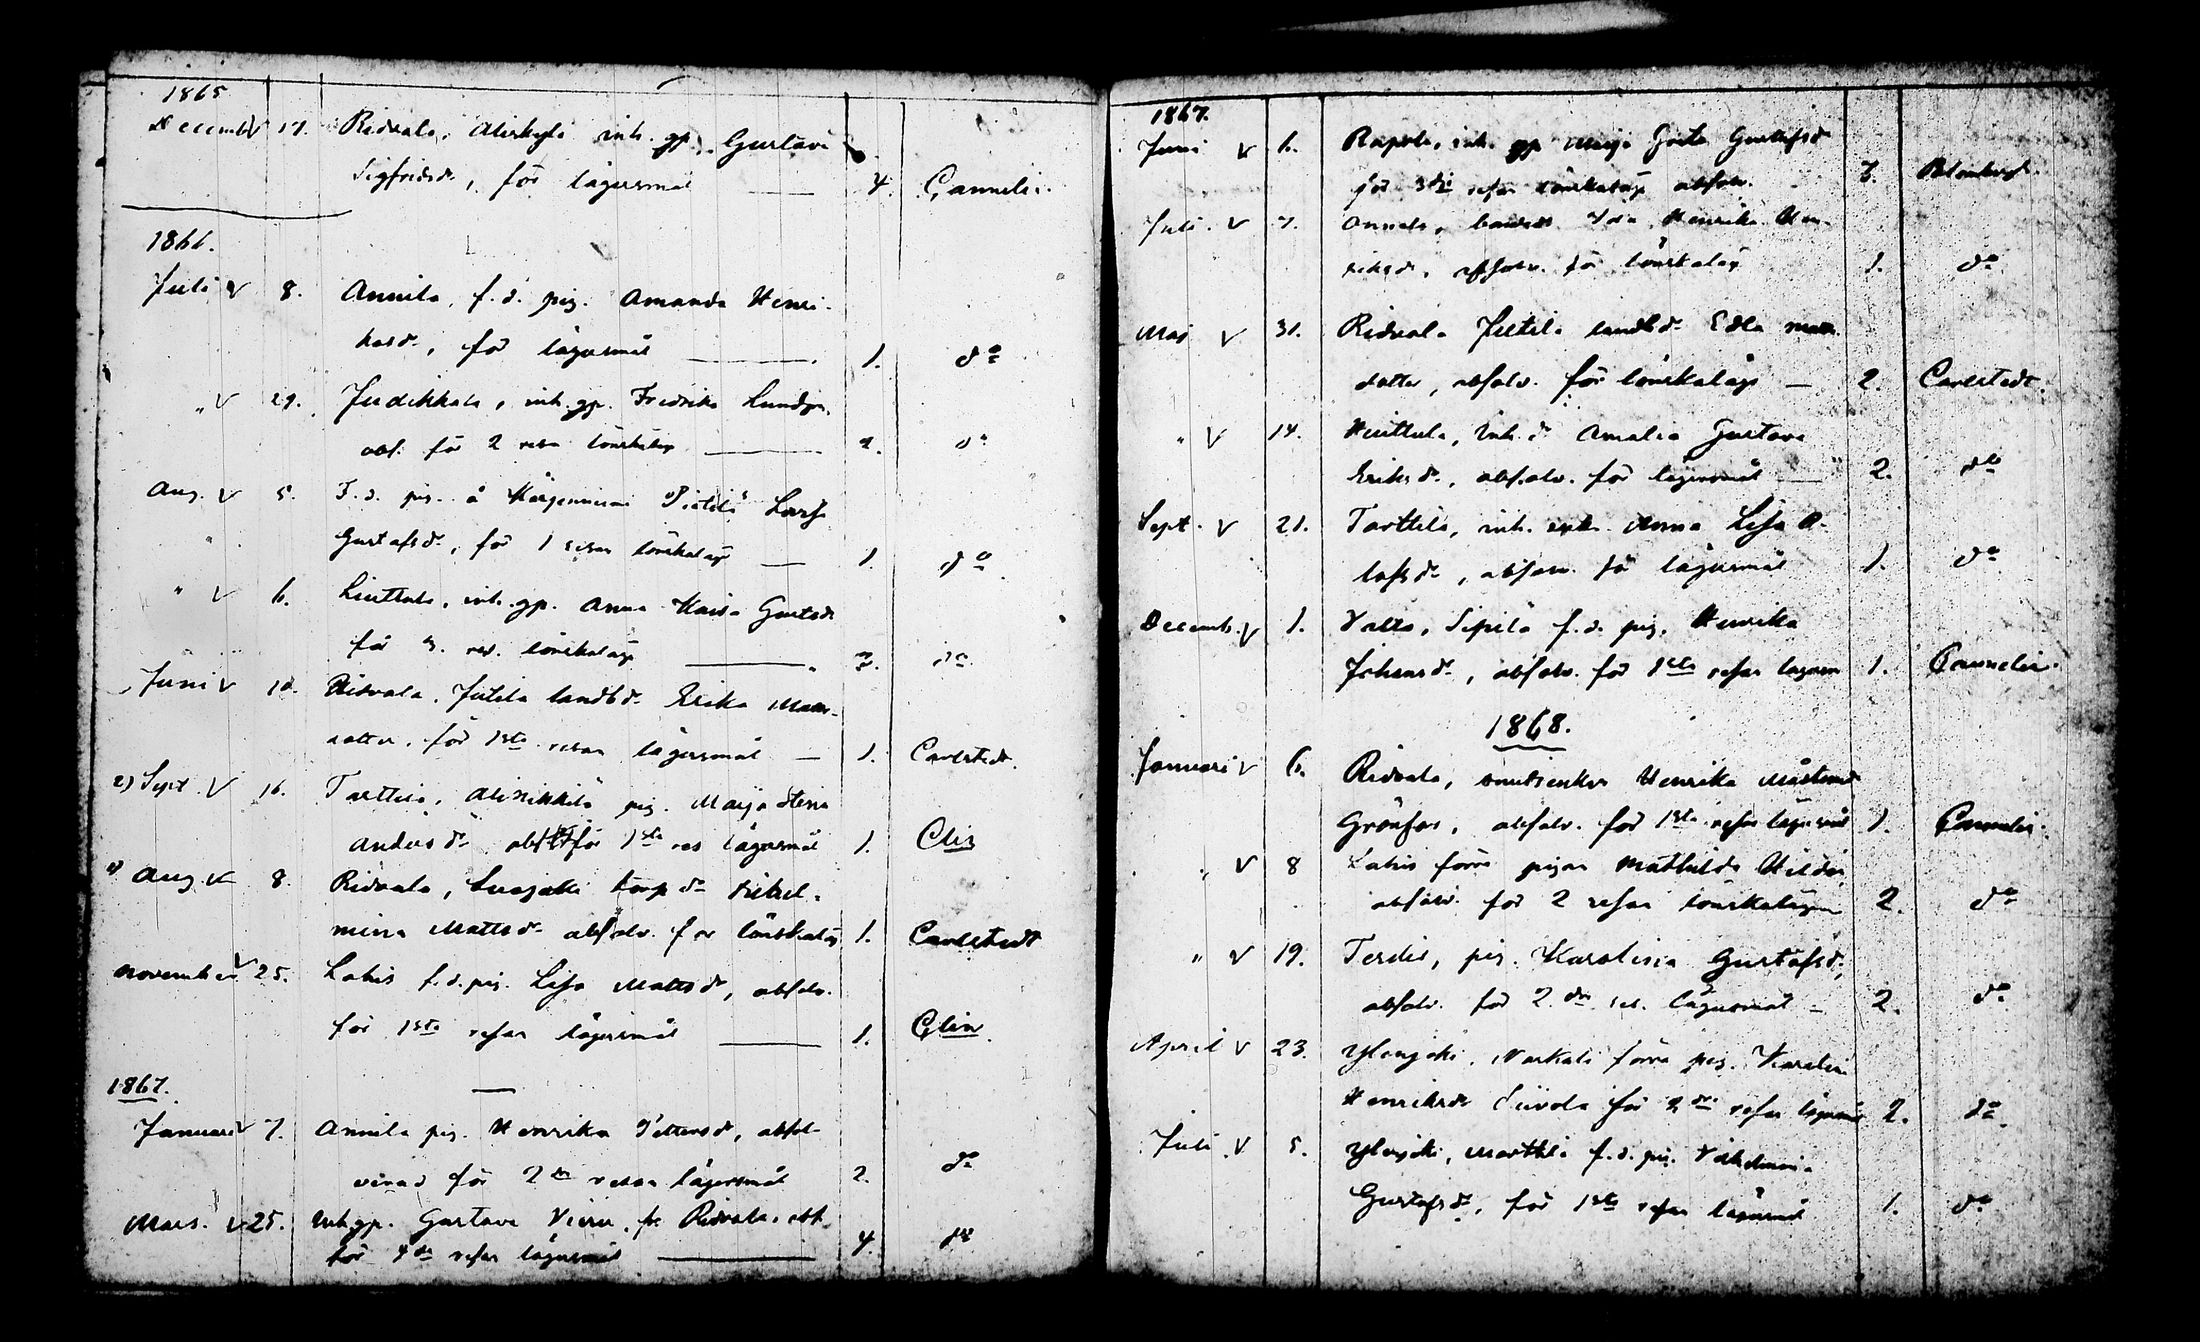 1865
Decemb. V 17. Ridvala, Alikylä inh. gp. Gustava
Sigfridsd., för lägersmål 4. Cannelin.
1866.
Juli V 8. Annila, f. d. pig. Amanda Henri-
ksd., för lägersmål 1. do
" V 29. Judikkala, inh. gp. Fredrika Lundgr.
abs. för 2 resa lönskaläge 2. do
Aug. V 5. F. d. pig. å Pietilä Lovisa
Gustafsd., för 1 resa lönskaläge 1. do
" V 6. Liuttula, inh. gp. Anna Kaisa Gustsd
för 3. res. lönskaläge 3. do
Juni V 10. Ridvala, Jutila landbd. Erika Matts-
dotter, för 1sta resan lägersmål 1. Carlstedt.
2) Sept. V 16. Tarttila, Alinikkilä pig. Maija Stina
Andersd. för 1sta res lägersmål 1. Clin
1) Aug V 8. Ridvala, torp.dr Vilhel-
mina Mattsd. absolv. för lönskaläg 1. Carlstedt
November V 25. Lahis f. d. pig. Lisa Mattsd, absolv.
för 1sta resan lägersmål 1. Clin.
1867.
Januari V 7. Annila pig. Henrika Pettersd, absol-
verad för 2dra resan lägersmål 2. do
Mars. V 25. Inh. gp. Gustava fr. Ridvala, abs.
för 4de resan lägersmål 4. do
1867.
Juni V 6. Rapola, inh. gp Maija Greta Gustafsd
för 3dje resan lönskaläge absolv. 3. Blomberg.
Juli. V 7. Annila, bonded. Ida Henrika Hen-
riksd., absolv. för lönskaläge 1. do
Maj V 31. Ridvala Jutila landbd. Edla Matts-
dotter, absolv. för lönskaläge 2. Carlstedt.
" V 14. Huittula, inh. d. Amalia Gustava
Eriksd., absolv. för lägersmål 2. do
Sept. V 21. Tarttila, inh. enk. Anna Lisa A-
, absolv. för lägersmål 1. do
Decemb. V 1. Valto, Sipilä f. d. pig. Henrika
Johansd., absolv. för 1sta resan lägersm 1. Cannelin.
1868.
Januari V 6. Ridvala, smedsenkan Henrika Mårtensd
Grönfors, absolv. för 1sta resan lägersmål 1. Cannelin.
" V 8 Lahis förra pigan Mathilda Hilda
absolv. för 2 resan lönskaläge 2. do
" V 19. Terdis, pig. Karolina Gustafsd.,
absolv. för 2.dra res. lägersmål 2. do
April V 23. Ylenjoki, förra pig. Karolina
Henriksd. för 2dra resan lägersmål 2. do
Juli. V 5. Ylenjoki, Marttila f. d. pig. Vilhelmina
Gustafsd., för 1sta resan lägersmål 1. do